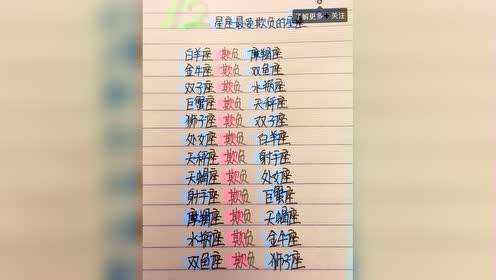 12
了解更多 关注
星座最爱欺负的星座
白羊座 欺负 摩羯座
金牛座 欺负 双鱼座
双子座 欺负 水瓶座
巨蟹座 欺负 天秤座
狮子座 欺负 双子座
处女座 欺负 白羊座
天秤座 欺负 射手座
天蝎座 欺负 处女座
射手座 欺负 巨蟹座
摩羯座 欺负 天蝎座
水瓶座 欺负 金牛座
双鱼座 欺负 狮子座